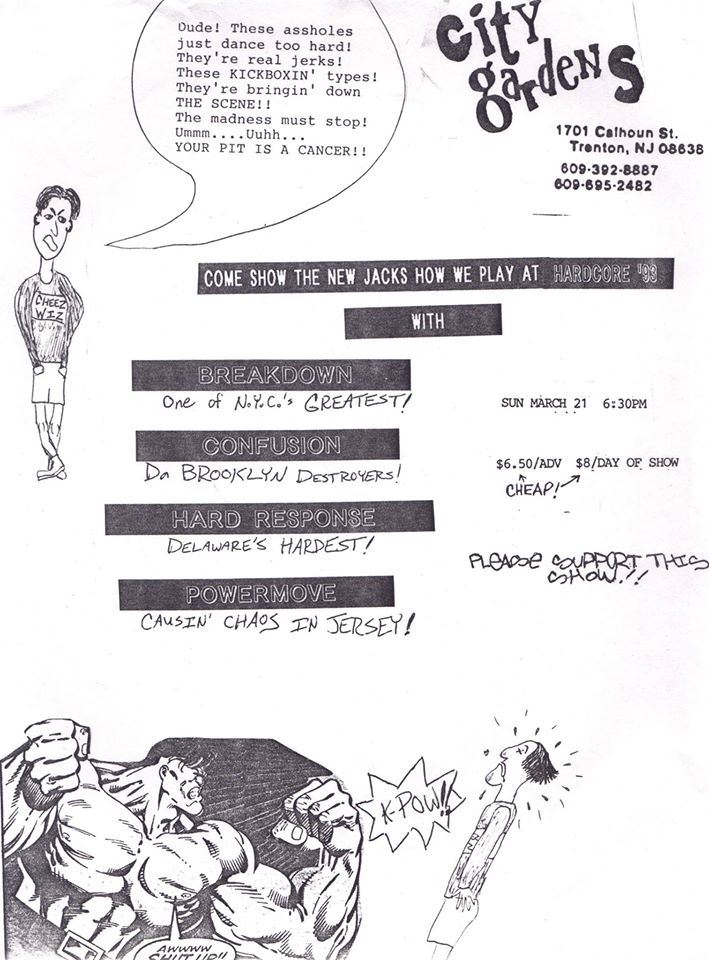 Dude! These assholes
just dance too hard!
They're real jerks!
These KICKBOXIN' types!
They're bringin' down
THE SCENE!!
The madness must stop!
Ummm....Uuhh...
YOUR PIT IS A CANCER!!
City
gardens
1701 Calhoun St.
Trenton, NJ 08638
609-392-8887
609-695-2482
CHEEZ
WIZ
COME SHOW THE NEW JACKS HOW WE PLAY AT HARDCORE '93
WITH
BREAKDOWN
One of N.Y.C.'s GREATEST!
CONFUSION
Da BROOKLYN DESTROYERS!
HARD RESPONSE
DELAWARE'S HARDEST!
POWERMOVE
CAUSIN' CHAOS IN JERSEY!
SUN MARCH 21 6:30PM
$6.50/ADV $8/DAY OF SHOW
CHEAP!
PLEASE SUPPORT THIS
SHOW!!
K-POW!!
AWWWW
SHUT UP!!